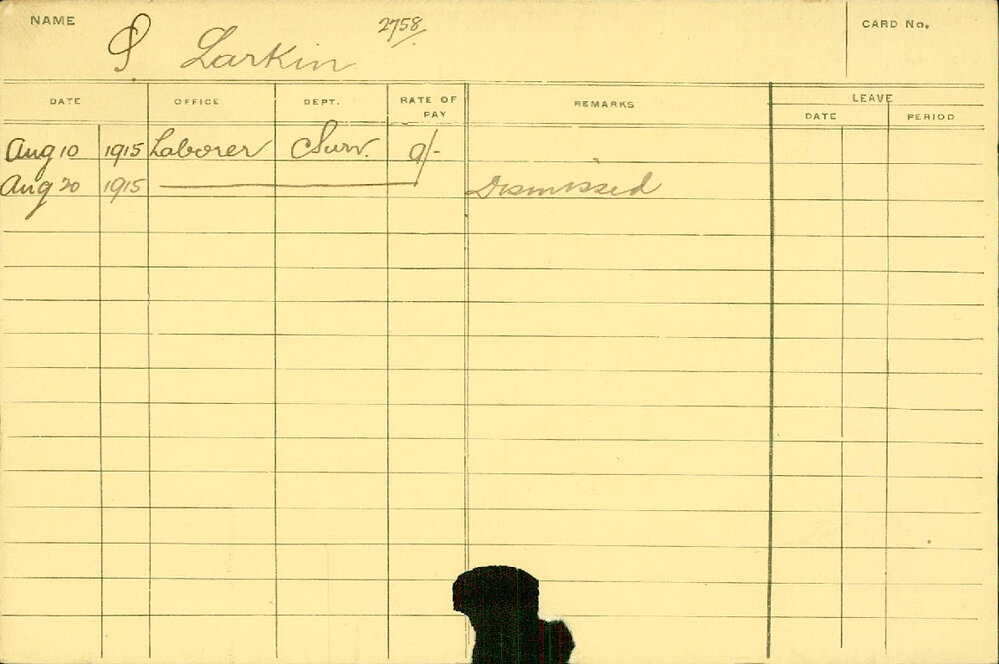 NAME
2758/
CARD No.
Larkin
DATE OFFICE DEPT. RATE OF PAY REMARKS LEAVE
DATE PERIOD
Aug 10 1915 Laborer Surv. 9/-
Aug 20 1915 Dismissed